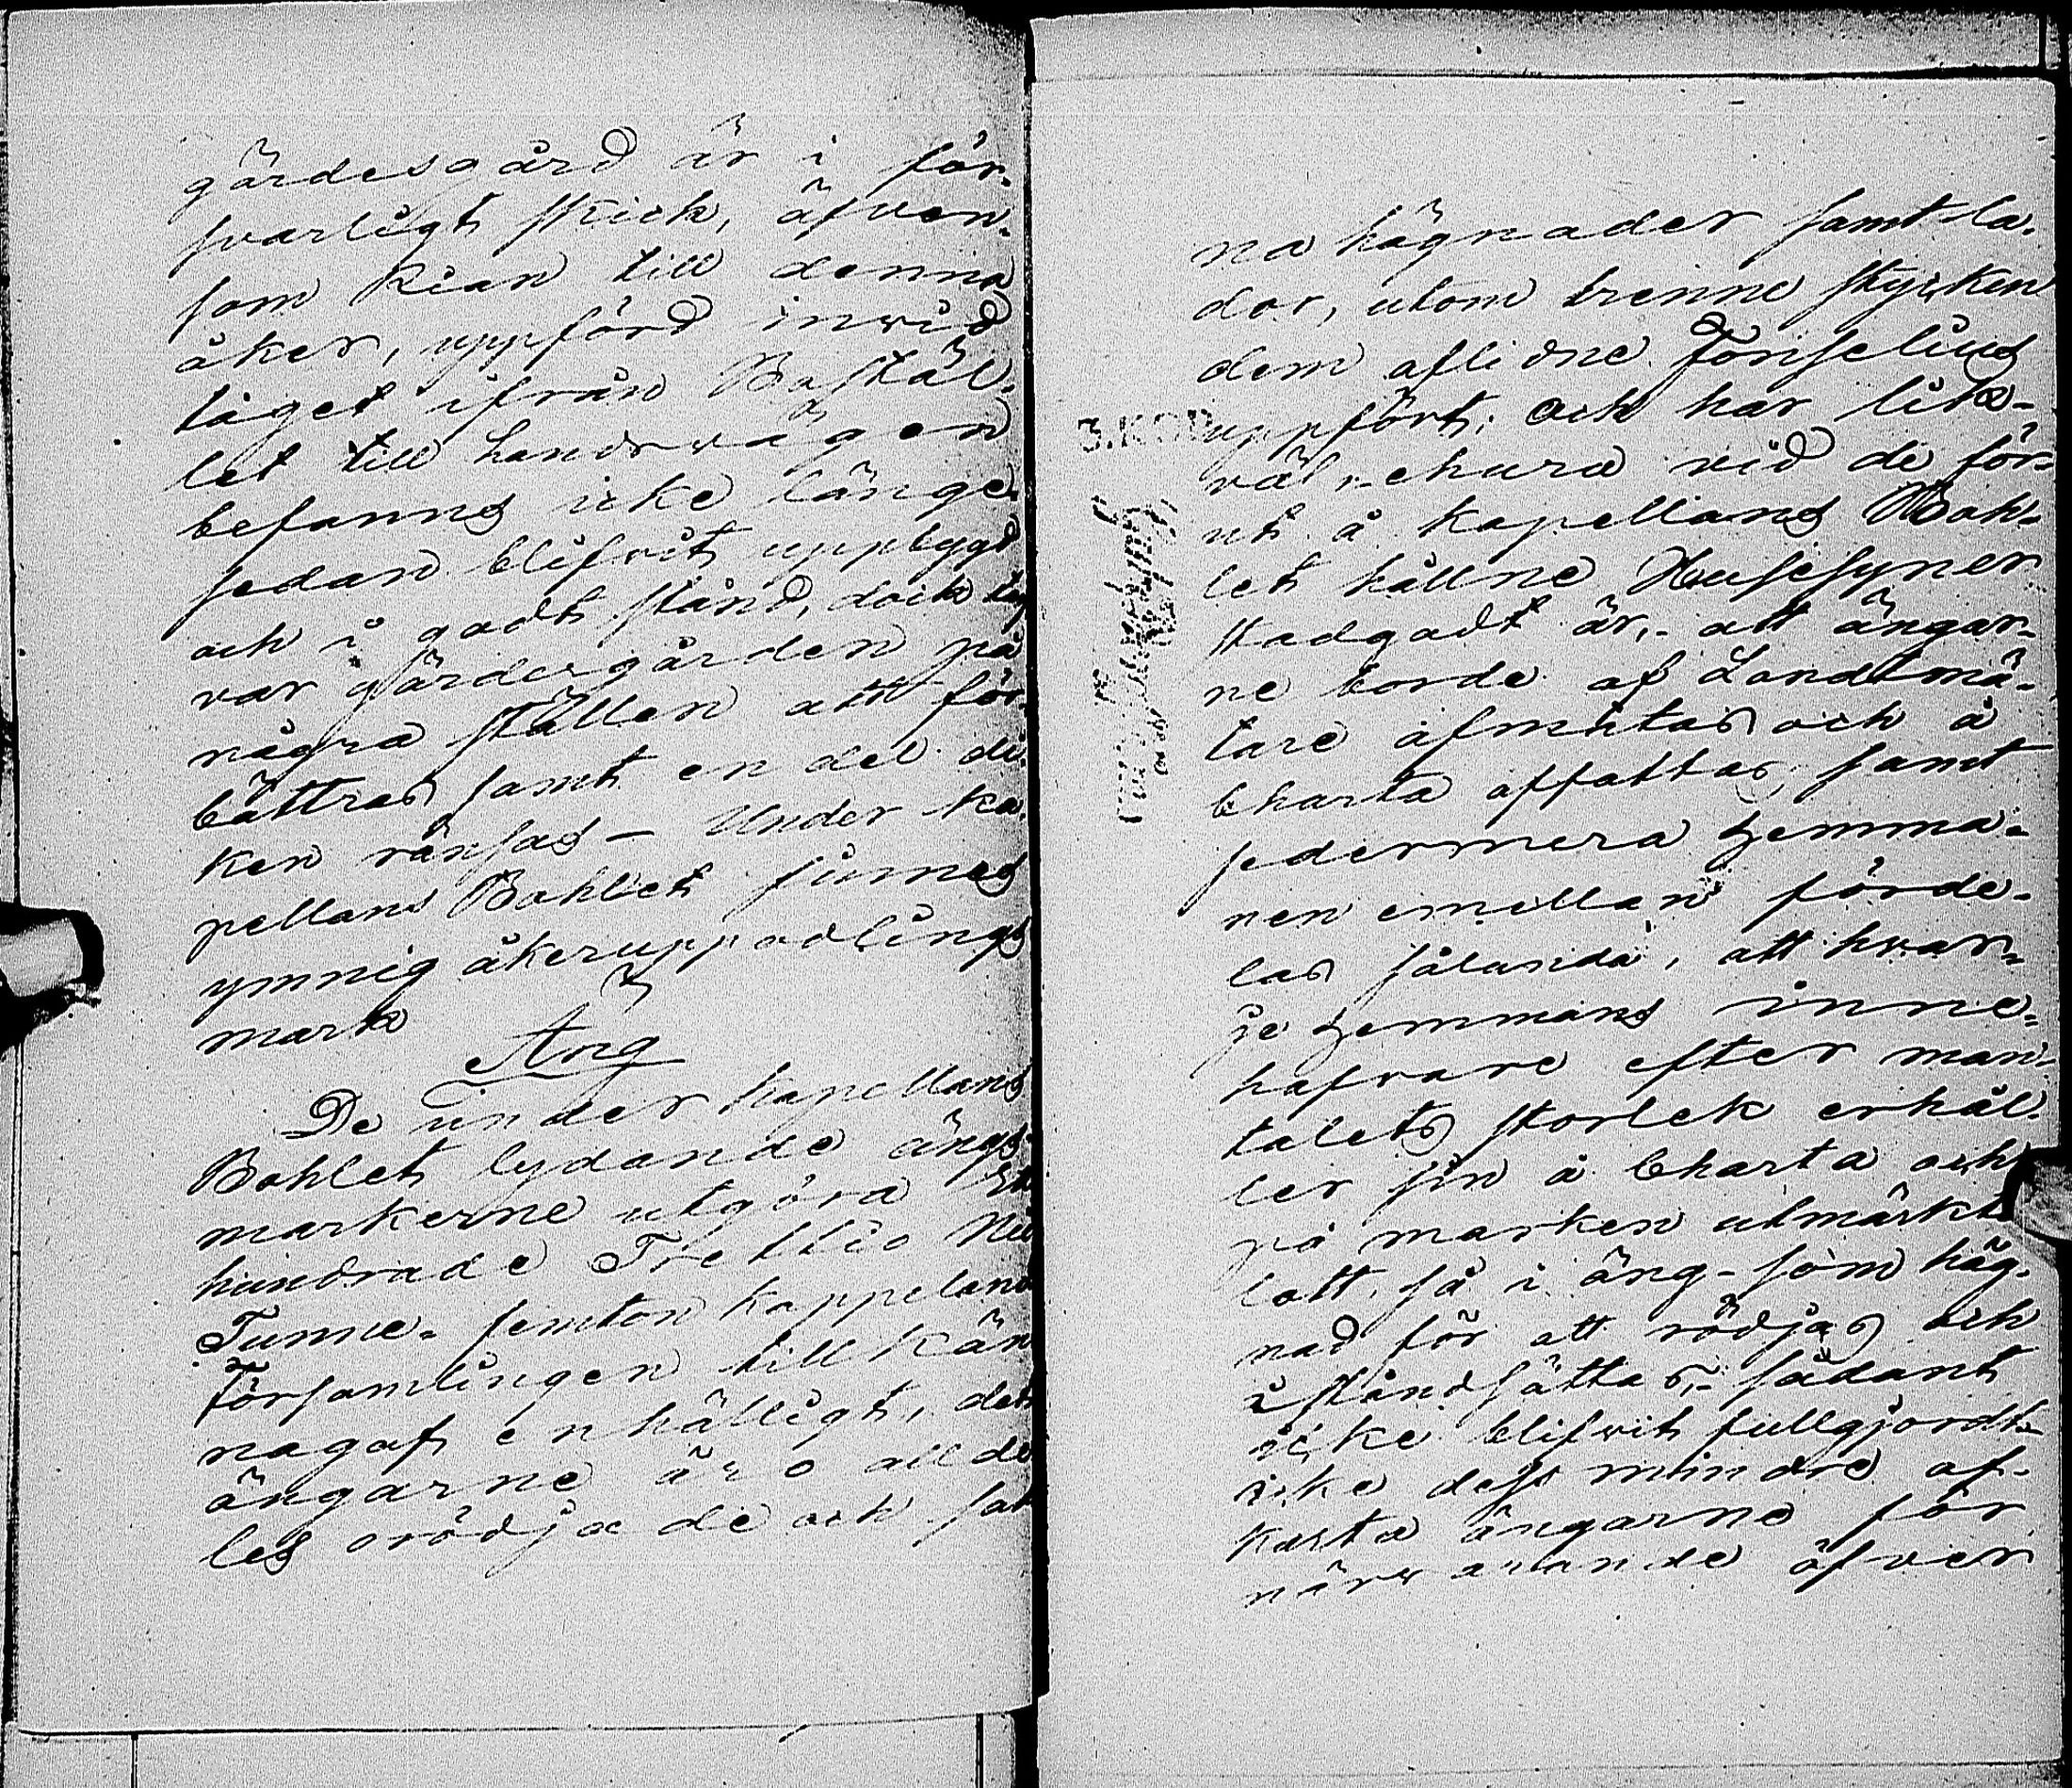 gärdesgård är i för-
svarligt skick, äfven-
som Rian till denna
åker, uppförd invid
tåget ifrån Boställ-
let till Landsvägen
befanns icke länge
sedan blifvit uppbygd
och i godt stånd, dock
var gärdesgården på
några ställen att för-
bättras samt en del di-
ken ränsas – Under Ka-
pellans Bohlet finnes
ymnig åkeruppodlings
mark
Äng
De under kapellans
Bohlet lydande ängs-
markerne utgöra Ett
hundrade Trettio Nio
Tunne- femton kappeland
Församlingen till kän
nagaf enhälligt, det
ängarne äro allde
les orödjade och sak
na hägnader samt la-
dor, utom trenne stycken
dem aflidne Fonselius
uppfört; och har lik-
väl, ehuru vid de för-
ut å kapellans Boh-
let hållne Husesyner
stadgadt är, att ängar-
ne borde af Landtmä-
tare afmätas och å
Charta affattas, samt
sedermera hemma-
nen emellan förde-
las sålunda, att hvar-
je hemmans inne-
hafvare efter man-
talets storlek erhål-
ler sin å Charta och
på marken utmärkt
lott, så i äng- som häg-
nad för att rödjas och
iståndsättas, sådant
icke blifvit fullgjordt
icke dess mindre af-
kasta ängarne för
närvarande öfver